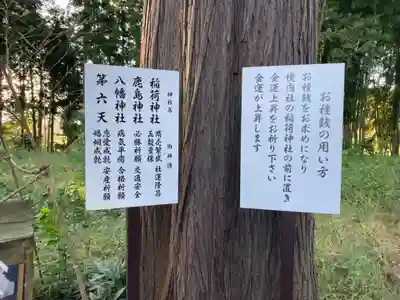 神社名 御神徳
稲荷神社 商売繁盛 社運隆昌
五穀豊穣
鹿島神社 必勝祈願 交通安全
八幡神社 病気平癒 合格祈願
第六天 恋愛成就 安産祈願
婚姻成就
お種銭の用い方
お種銭をお求めになり
境内社の稲荷神社の前に置き
金運上昇をお祈り下さい
金運が上昇します